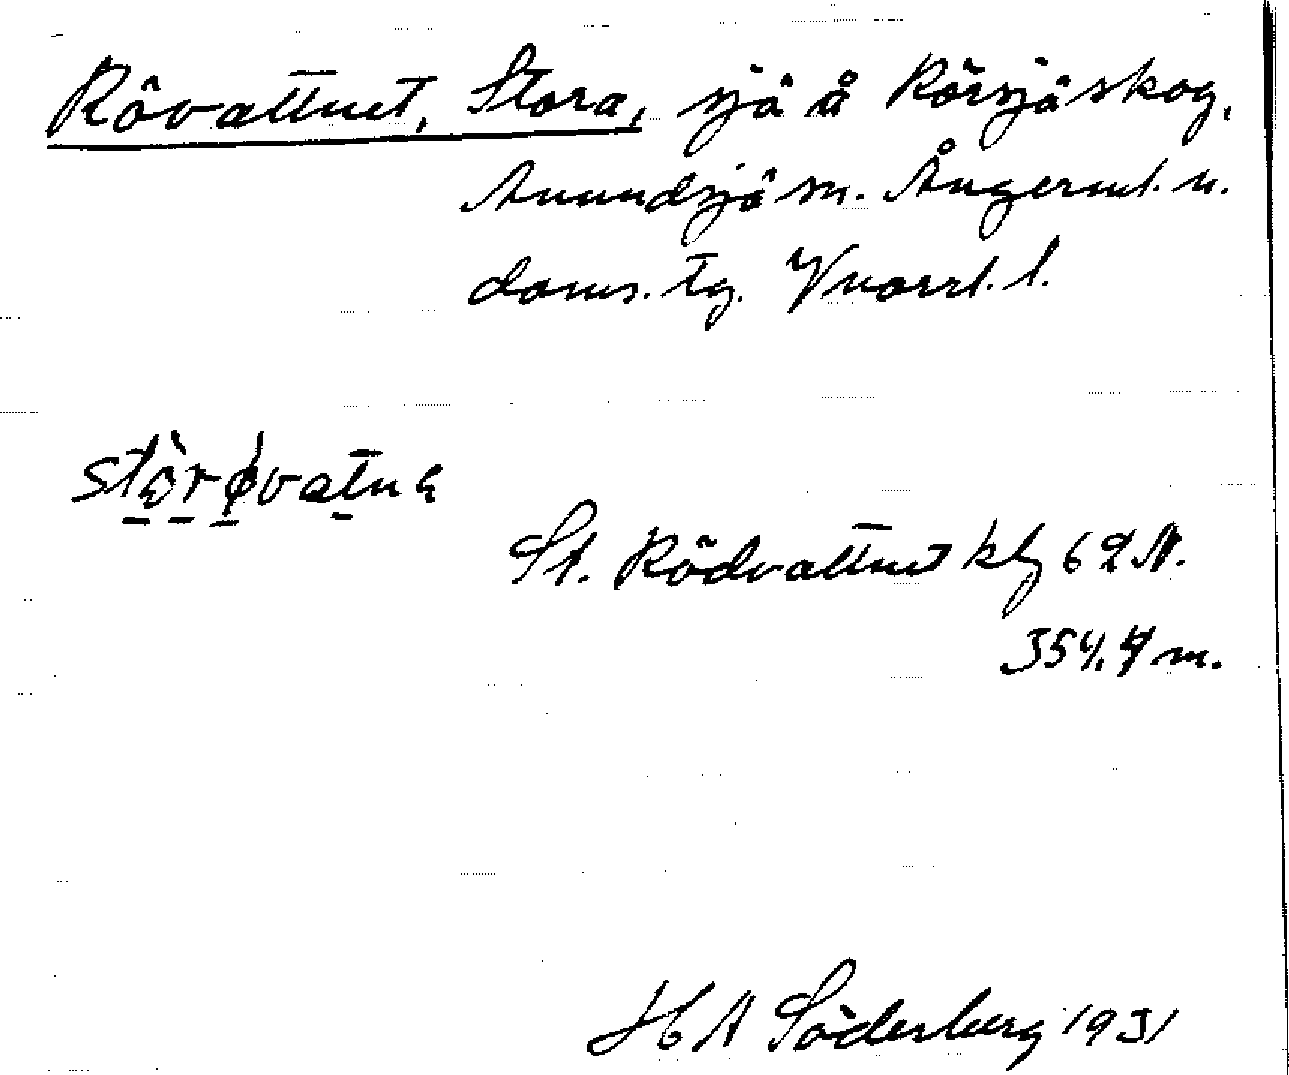 Rövattnet, Stora, sjö å Rörsjöskog,
Anundsjö sn. Ångerml. n.
doms. tg. Vnorrl. l.
störøvatnɛ
St. Rödvattnet kbg 62 N.
354.4 m.
H A Söderberg 1931